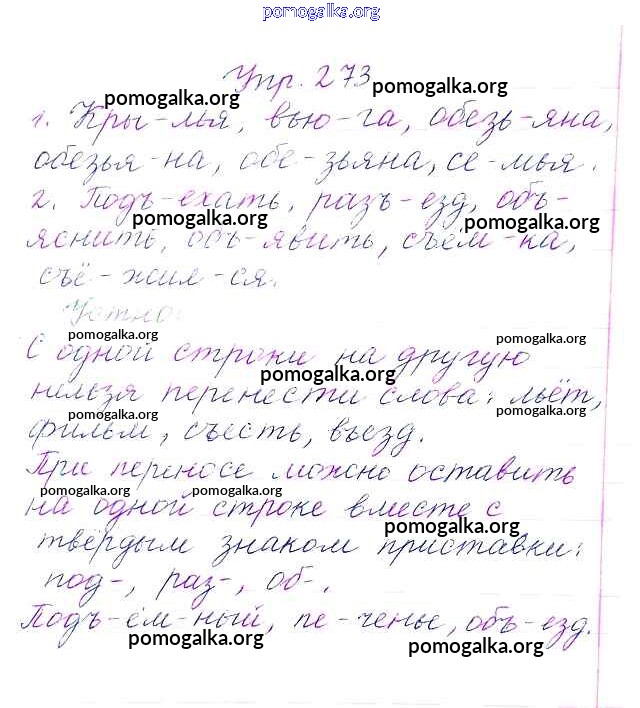 pomogalka.org
Упр. 273
pomogalka.org
pomogalka.org
1. Кры-лья, вью-га, обезь-яна,
обезья-на, обе-зьяна, се-мья.
2. Подъ-ехать, разъ-езд, объ-
pomogalka.org
pomogalka.org
яснить, объ-явить, съём-ка,
съё-жил-ся.
Устно:
pomogalka.org
pomogalka.org
С одной строки на другую
pomogalka.org
нельзя перенести слова: льёт,
pomogalka.org
pomogalka.org
фильм, съесть, въезд.
При переносе можно оставить
pomogalka.org
pomogalka.org
на одной строке вместе с
pomogalka.org
твёрдым знаком приставки:
под-, раз-, об-.
Подъ-ём-ный, пе-ченье, объ-езд.
pomogalka.org
pomogalka.org